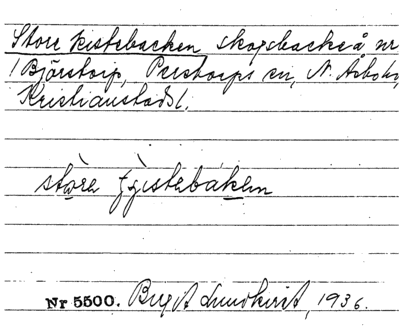 Store Kistebacken skogsbacke å nr
1 Björstorp, Perstorps sn, N. Åsbo hd,
Kristianstads l.
store kistebaken
Nr 5500. Birgit Lundkvist, 1936.